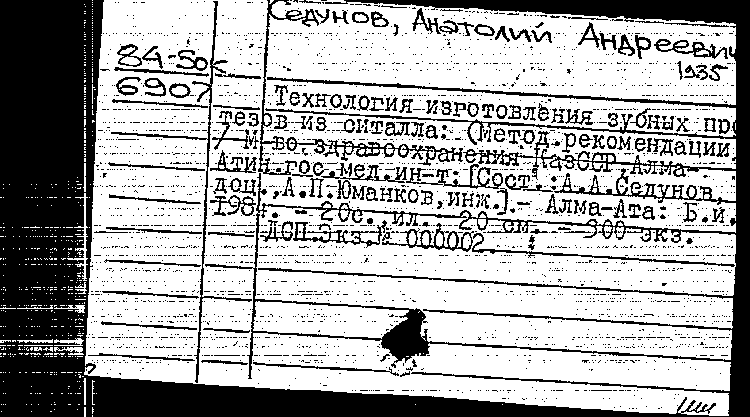 Седунов, Анатолий Андреевич
1935
84-5ок
6907
Технология изготовления зубных про
тезов из ситалла: (Метод.рекомендации
/ М-во здравоохранения КазССР, Алма-
Атин.гос.мед.ин-т; [Сост.: А.А.Седунов,
доц., А.П.Юманков, инж.].- Алма-Ата: Б.и.
1984. - 20с. ил., 20 см. - 300 экз.
ДСП.Экз.№ 000002.